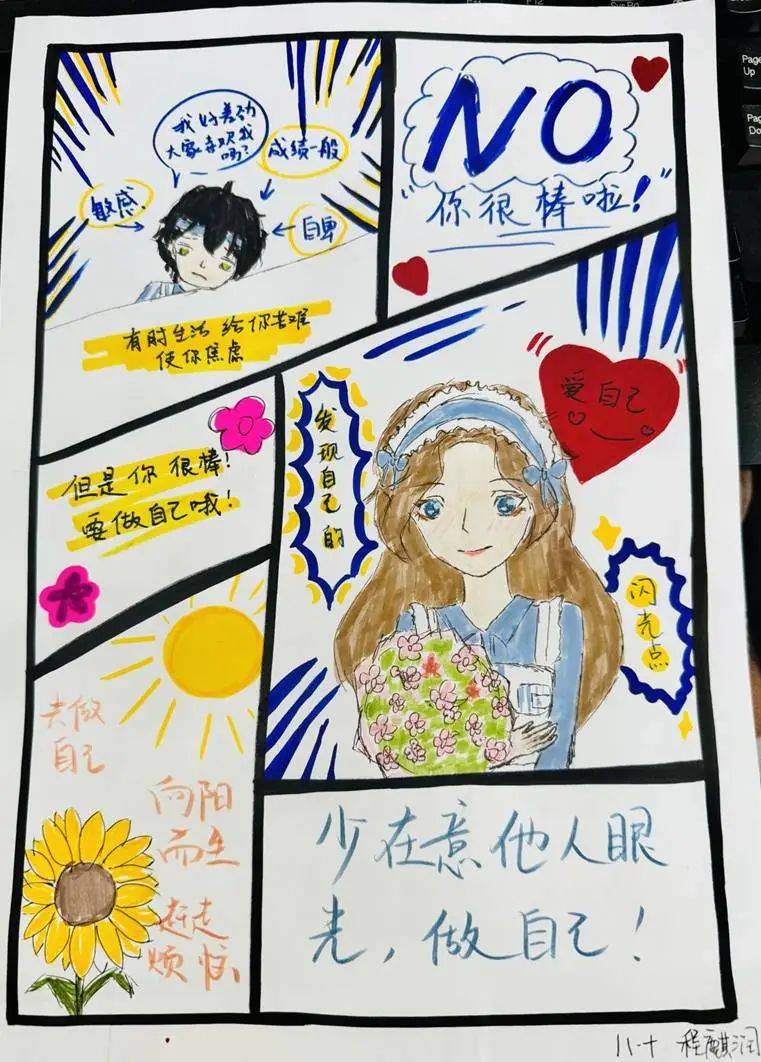 我好差劲
大家喜欢我
吗?
成绩一般
敏感.
自卑
有时生活 给你苦难
使你焦虑
NO
"你很棒啦!"
但是你 很棒!
要做自己哦!
爱自己
发现自己的
闪光点
去做
自己
向阳
而生
赶走
烦恼
少在意他人眼
光,做自己!
八十 程麒润
Page
Up
Page